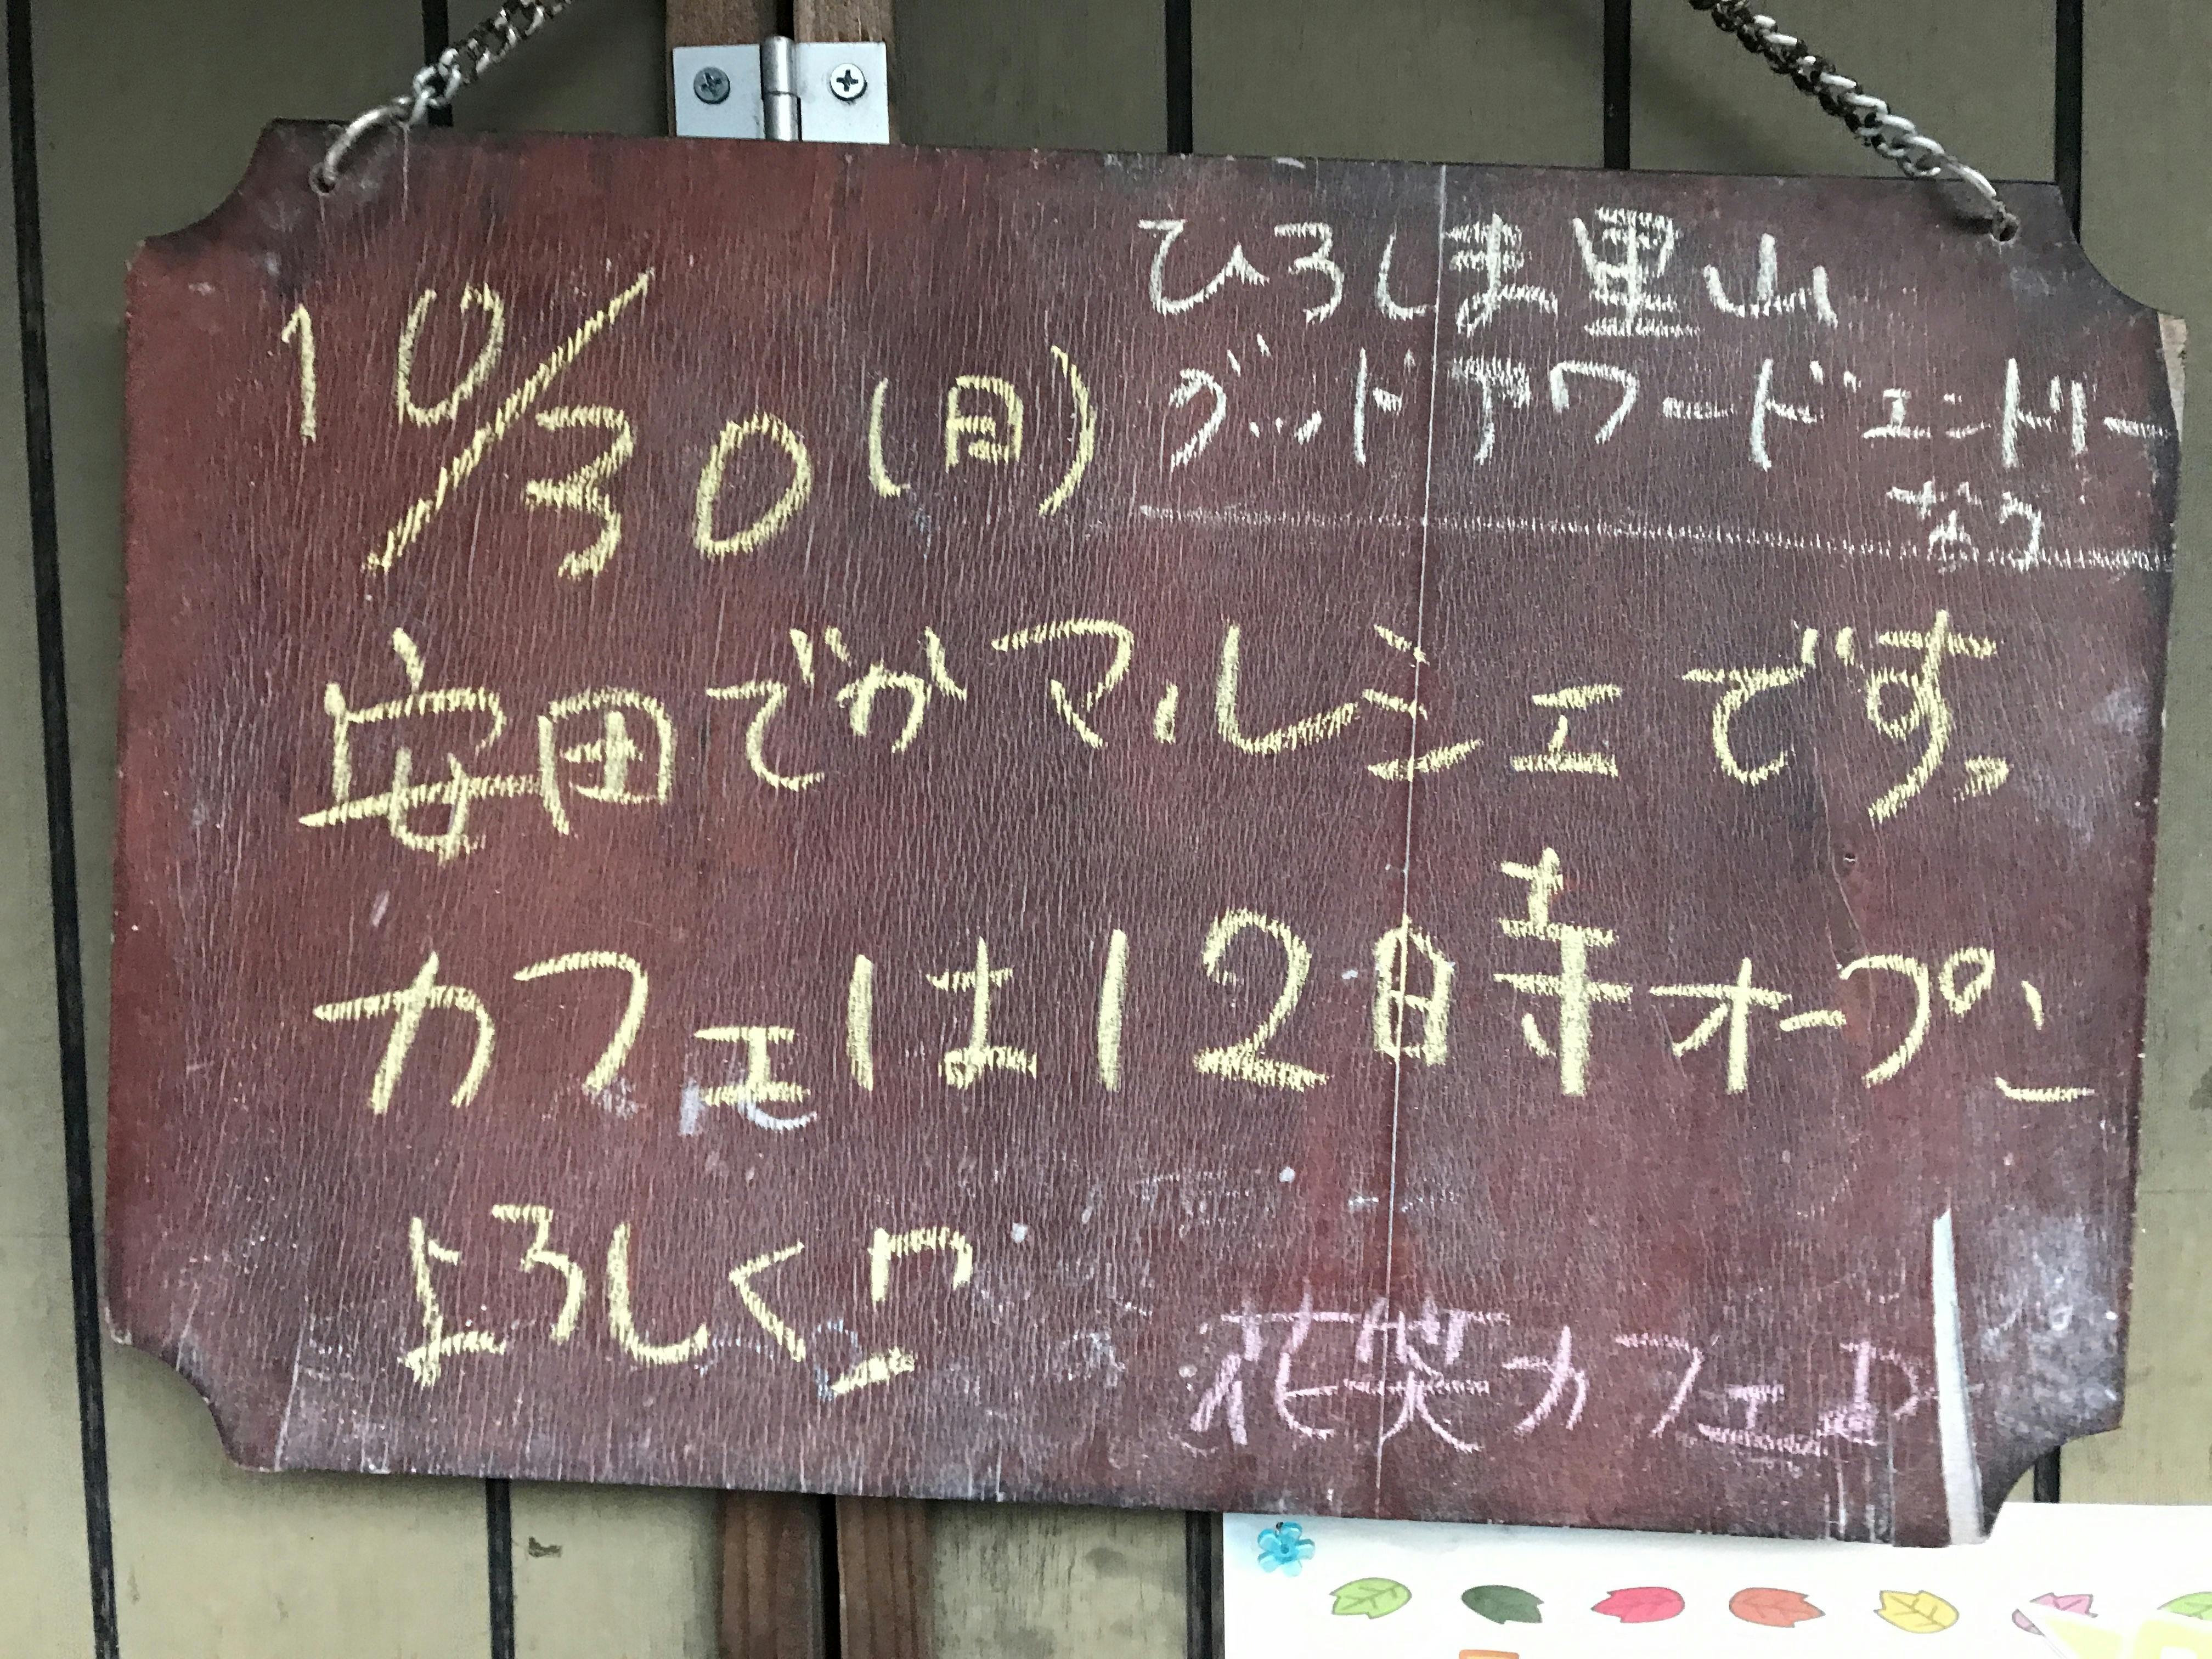 ひろしま里山
グッドアワードエントリー
中
10/30(月)
安田でがマルシェです。
カフェは12時オープン
よろしく
花笑カフェ